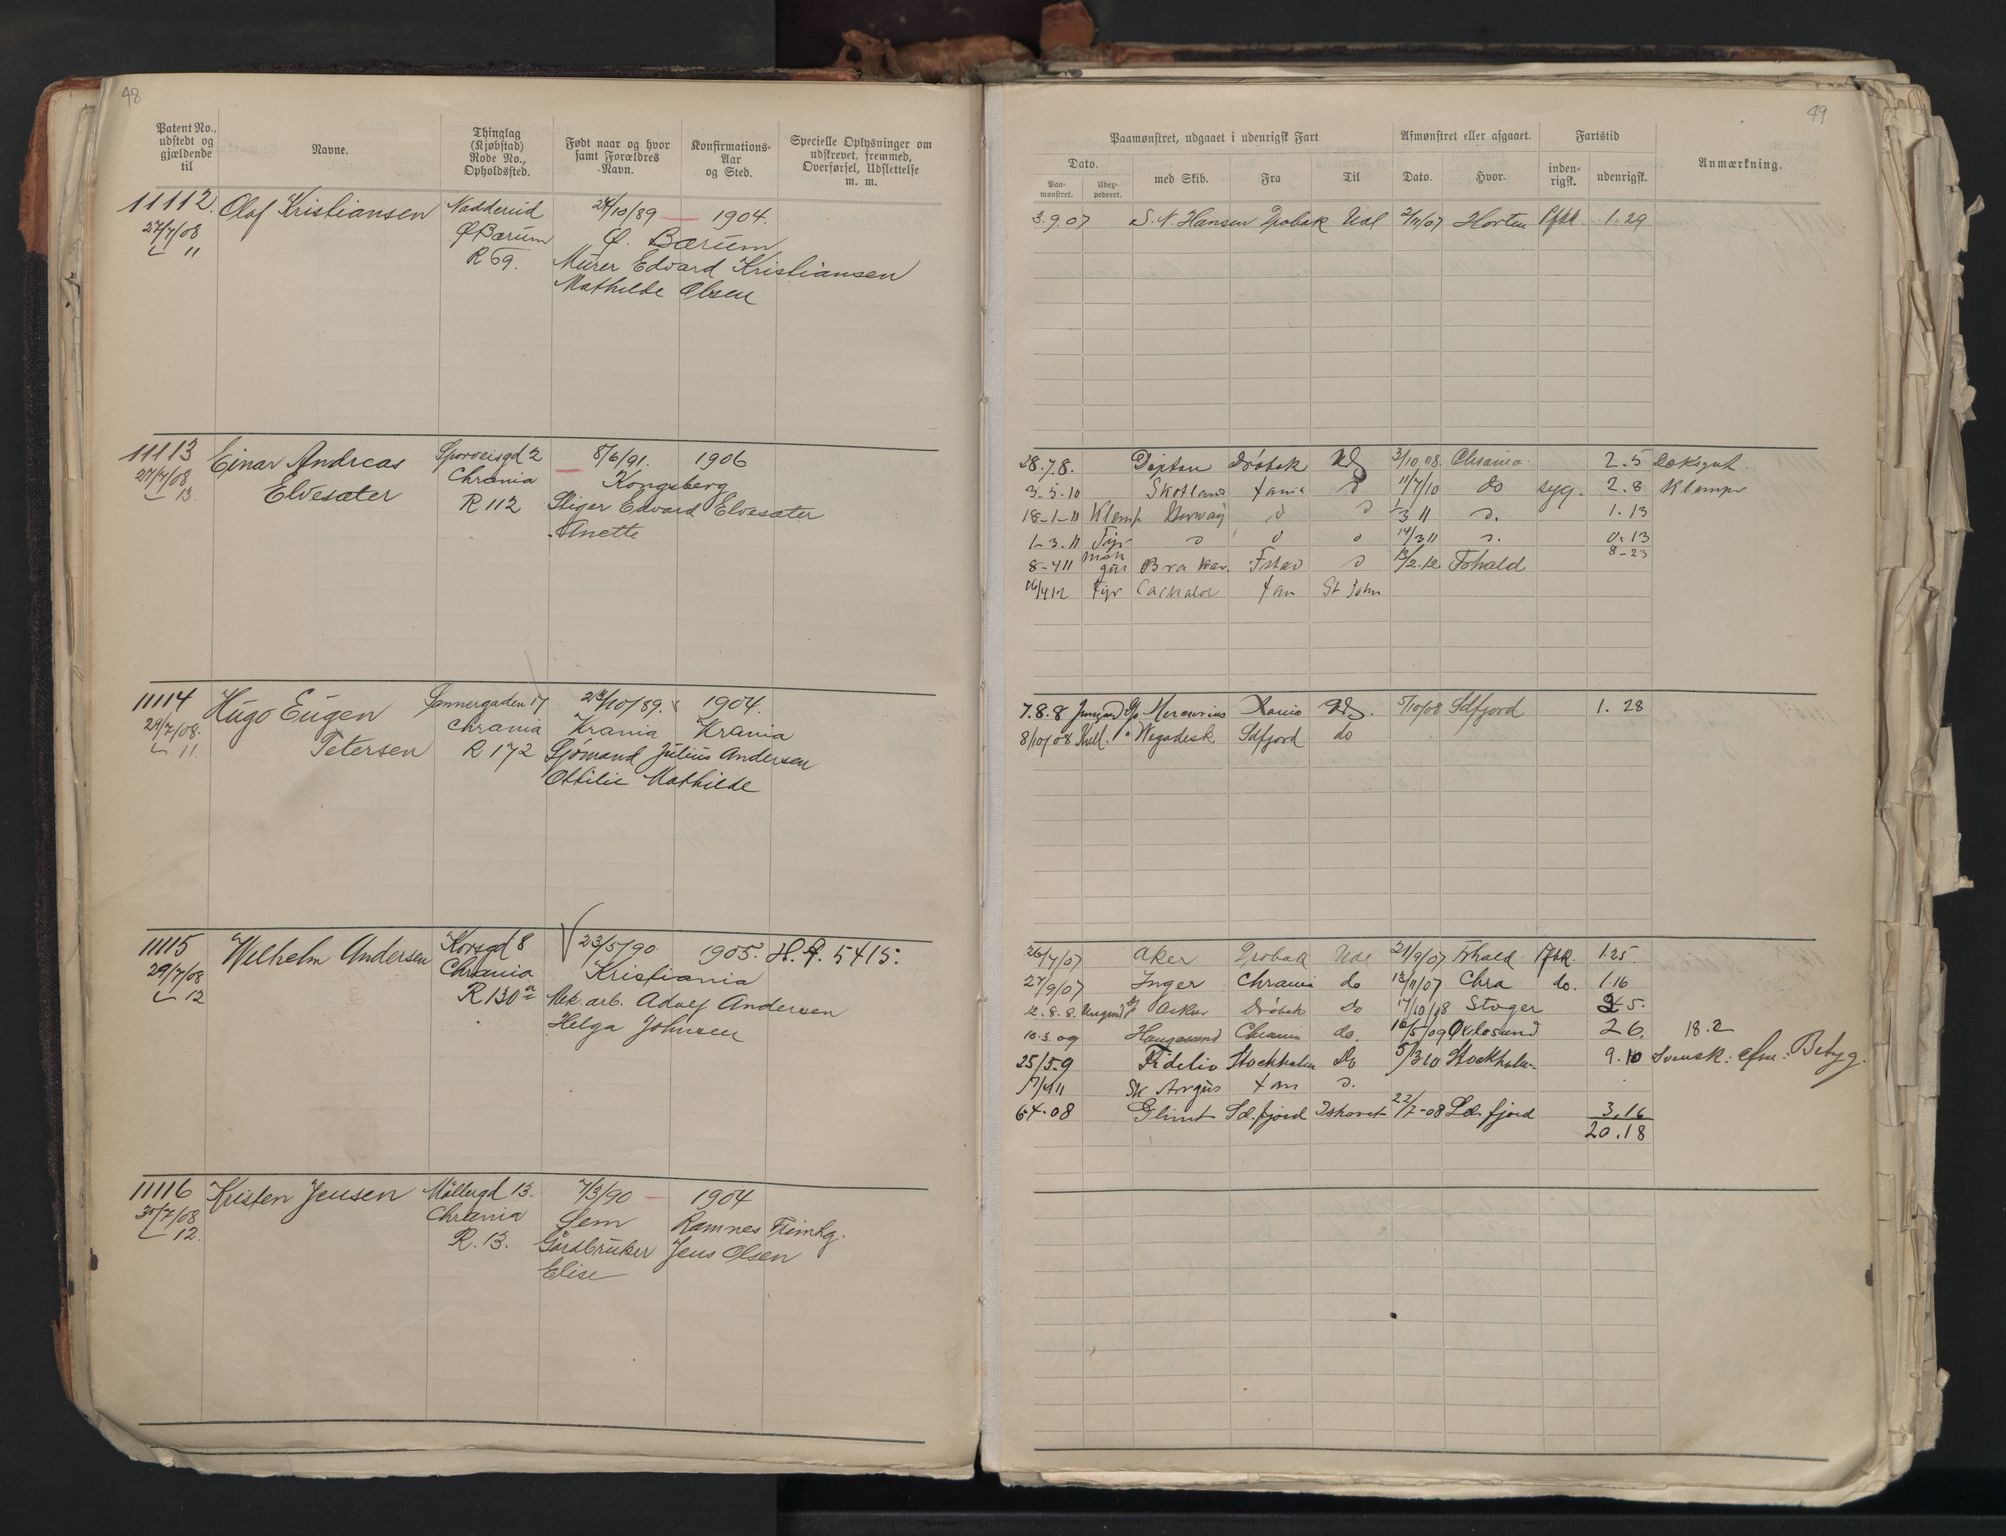 48
Patent No., udstedt og gjældende til
Navne.
Thinglag (Kjøbstad) Rode No., Opholdssted.
Født naar og hvor samt Forældres Navn.
Konfirmations-Aar og Sted.
Specielle Oplysninger om udskrevet, fremmed, Overførsel, Udslettelse m. m.
11112. Olaf Kristiansen Nadderud 24/10/89 — 1904.
27/7/08 Ø Bærum Ø. Bærum
11 R 69. Murer Edvard Kristiansen
Mathilde Olsen
11113 Einar Andreas Sporveisgd 2 8/6/91. 1906
27/7/08 Elvesæter Chrania Kongsberg
13. R 112 Stiger Edvard Elvesæter
Anette
11114 Hugo Eugen Sannergaden 17 23/10/89. 1904.
29/7/08. Petersen Chrania Krania Krania
11. R 172 Sjømand Julius Andersen
Ottilie Mathilde
11115 Wilhelm Andersen Korsgd 8 23/5/90 1905. H. A. 5415.
29/7/08 Chrania Kristiania
12 R 130a Mek. arb. Adolf Andersen
Helga Johnsen
11116 Kristen Jensen Møllergd 13. 7/3/90 — 1904
30/7/08 Chrania Sem Ramnes Frimkg.
12. R. 13. Gårdbruker Jens Olsen
Elise
49
Paamønstret, udgaaet i udenrigsk Fart
Afmønstret eller afgaaet.
Fartstid
Anmærkning.
Dato.
Paa-mønstret.
Udex-pederet.
med Skib.
Fra
Til
Dato.
Hvor.
inden-rigsk.
udenrigsk.
3.9.07 S. N. Hansen Drobak Udl 2/11/07 Horten Pfsk 1.29
28.7.8. Drøbak Udl 3/10.08. Chrania. 2.5
3.5.10 Skotland Xania d 11/7/10 do syg. 2.8
18-1-11 Norway d d 1/3 11 d. 1.13
1-3.11 Fyr d d d 14/3 11 d. 0.13
8-4 11 Brakar. Fstad d 13/2.12 Fshald 8-23
16/4 12 Fyr Cachalot Xan St John
7.8.8 Jungmd S/s Mercurius Xania Udl. 5/10/08 Sdfjord 1.28
8/10/08 " Wegadesk Sdfjord do
26/7/07 Aker Drobak Udl 21/9/07 Frhald Pfsk. 1.25
27/9/07 Inger Chrania do 13/11/07 Chra do. 1.16
2.8.8. Ungmd Drøbak do 17/10/08 5.
10.3.09 Haugesund Chrania do. 16/5/09 Oxlosund 2 6. 18.2
25/5.9 Fidelio Stockholm Do 5/3 10 Stockholm 9.10 Svensk.
Sk Argus Xan d.
6 4-08 Glimt Sd.fjord Ishavet 22/7-08 Sd.fjord 3.16
20.18